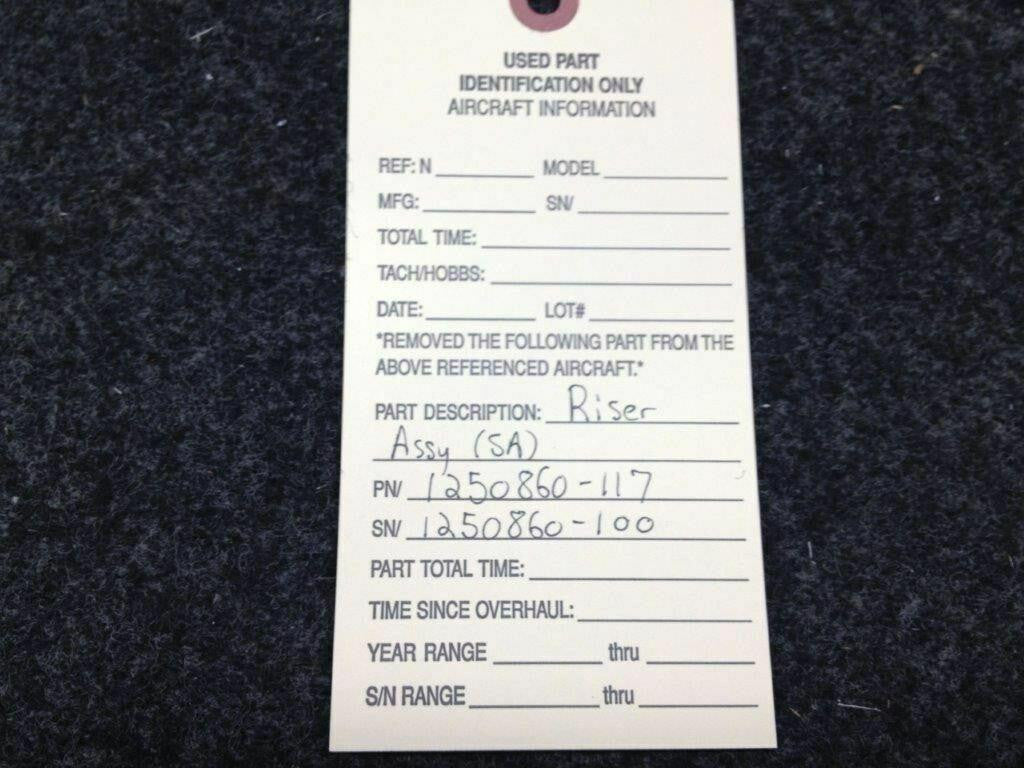 USED PART
IDENTIFICATION ONLY
AIRCRAFT INFORMATION
REF: N ________ MODEL ________
MFG: ________ SN/ ________
TOTAL TIME: ________
TACH/HOBBS: ________
DATE: ________ LOT# ________
*REMOVED THE FOLLOWING PART FROM THE
ABOVE REFERENCED AIRCRAFT.*
PART DESCRIPTION: Riser
Assy (SA)
PN/ 1250860-117
SN/ 1250860-100
PART TOTAL TIME: ________
TIME SINCE OVERHAUL: ________
YEAR RANGE ________ thru ________
S/N RANGE ________ thru ________